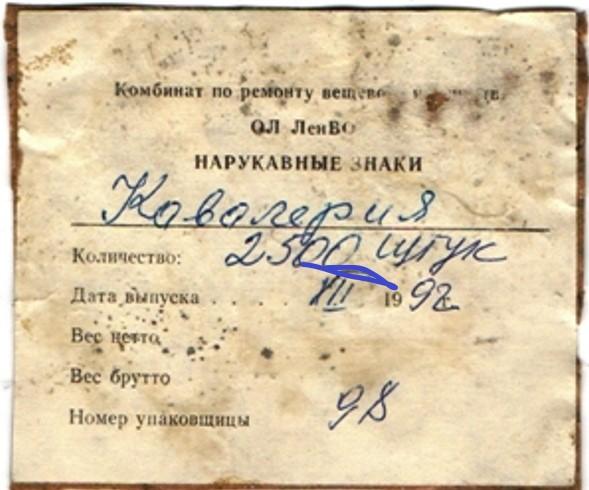 Комбинат по ремонту
ОЛ ЛенВО
НАРУКАВНЫЕ ЗНАКИ
Кавалерия
Количество: 2500 штук
Дата выпуска . . . . . VIII 1992 г.
Вес нетто
Вес брутто
Номер упаковщицы 98